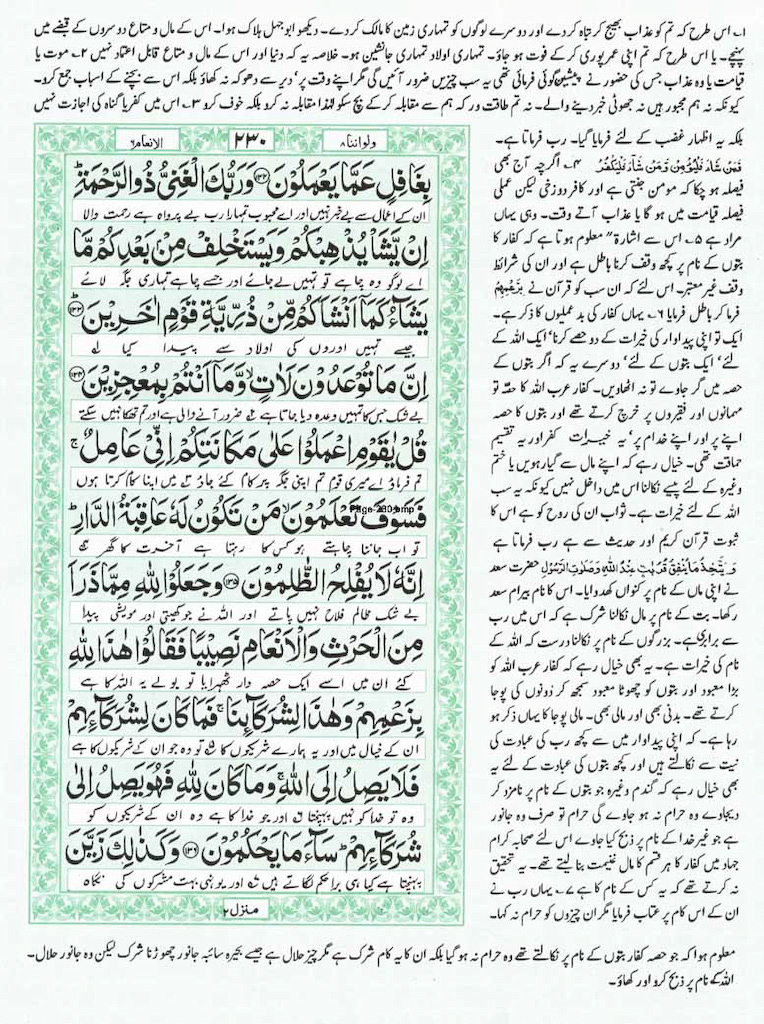 ۱۔ اس طرح کہ تم کو عذاب بھیج کر تباہ کر دے اور دوسرے لوگوں کو تمہاری زمین کا مالک کر دے۔ دیکھو ابو جہل ہلاک ہوا۔ اس کے مال و متاع دوسروں کے قبضے میں
پہنچے۔ یا اس طرح کہ تم اپنی عمر پوری کر کے فوت ہو جاؤ۔ تمہاری اولاد تمہاری جانشین ہو۔ خلاصہ یہ کہ دنیا اور اس کے مال و متاع قابل اعتماد نہیں ۲۔ موت یا
قیامت یا وہ عذاب جس کی حضور نے پیشین گوئی فرمائی تھی یہ سب چیزیں ضرور آئیں گی مگر اپنے وقت پر' دیر سے دھوکہ نہ کھاؤ بلکہ اس سے بچنے کے اسباب جمع کرو۔
کیونکہ نہ ہم مجبور ہیں نہ جھوٹی خبر دینے والے۔ نہ تم طاقت ور کہ ہم سے مقابلہ کر کے بچ سکو لہذا مقابلہ نہ کرو بلکہ خوف کرو ۳۔ اس میں کفر یا گناہ کی اجازت نہیں
ولواننا ۸
۲۳۰
الانعام ۶
بِغَافِلٍ عَمَّا يَعْمَلُوْنَ ۝۱۳۲ وَرَبُّكَ الْغَنِيُّ ذُو الرَّحْمَةِ ؕ
ان کے اعمال سے بے خبر نہیں اور اے محبوب تمہارا رب بے پرواہ ہے رحمت والا
اِنْ يَّشَاْ يُذْهِبْكُمْ وَيَسْتَخْلِفْ مِنْۢ بَعْدِكُمْ مَّا
اے لوگو وہ چاہے تو تمہیں لے جائے اور جسے چاہے تمہاری جگہ لائے
يَشَآءُ كَمَاۤ اَنْشَاَكُمْ مِّنْ ذُرِّيَّةِ قَوْمٍ اٰخَرِيْنَ ۝۱۳۳
جیسے تمہیں اوروں کی اولاد سے پیدا کیا
اِنَّ مَا تُوْعَدُوْنَ لَاٰتٍ ۙ وَّمَاۤ اَنْتُمْ بِمُعْجِزِيْنَ ۝۱۳۴
بے شک جس کا تمہیں وعدہ دیا جاتا ہے ضرور آنے والی ہے اور تم تھکا نہیں سکتے
قُلْ يٰقَوْمِ اعْمَلُوْا عَلٰى مَكَانَتِكُمْ اِنِّيْ عَامِلٌ ۚ
تم فرماؤ اے میری قوم تم اپنی جگہ پر کام کئے جاؤ میں اپنا کام کرتا ہوں
فَسَوْفَ تَعْلَمُوْنَ ۙ مَنْ تَكُوْنُ لَهٗ عَاقِبَةُ الدَّارِ ؕ
Page-230.bmp
تو اب جاننا چاہتے ہو کس کا رہتا ہے آخرت کا گھر
اِنَّهٗ لَا يُفْلِحُ الظّٰلِمُوْنَ ۝۱۳۵ وَجَعَلُوْا لِلّٰهِ مِمَّا ذَرَاَ
بے شک ظالم فلاح نہیں پاتے اور اللہ نے جو کھیتی اور مویشی پیدا
مِنَ الْحَرْثِ وَالْاَنْعَامِ نَصِيْبًا فَقَالُوْا هٰذَا لِلّٰهِ
کئے ان میں اسے ایک حصہ دار ٹھہرایا تو بولے یہ اللہ کا ہے
بِزَعْمِهِمْ وَهٰذَا لِشُرَكَآئِنَا ۚ فَمَا كَانَ لِشُرَكَآئِهِمْ
ان کے خیال میں اور یہ ہمارے شریکوں کا تو وہ جو ان کے شریکوں کا ہے
فَلَا يَصِلُ اِلَى اللّٰهِ ۚ وَمَا كَانَ لِلّٰهِ فَهُوَ يَصِلُ اِلٰى
وہ تو خدا کو نہیں پہنچتا اور جو خدا کا ہے وہ ان کے شریکوں کو
شُرَكَآئِهِمْ ؕ سَآءَ مَا يَحْكُمُوْنَ ۝۱۳۶ وَكَذٰلِكَ زَيَّنَ
پہنچتا ہے کیا ہی برا حکم لگاتے ہیں اور یونہی بہت مشرکوں کی نگاہ
منزل ۲
بلکہ یہ اظہار غضب کے لئے فرمایا گیا۔ رب فرماتا ہے۔
فَمَنْ شَآءَ فَلْيُؤْمِنْ وَّمَنْ شَآءَ فَلْيَكْفُرْ ۴۔ اگرچہ آج بھی
فیصلہ ہو چکا کہ مومن جنتی ہے اور کافر دوزخی لیکن عملی
فیصلہ قیامت میں ہو گا یا عذاب آتے وقت۔ وہی یہاں
مراد ہے ۵۔ اس سے اشارۃً معلوم ہوتا ہے کہ کفار کا
بتوں کے نام پر کچھ وقف کرنا باطل ہے اور ان کی شرائط
وقف غیر معتبر۔ اس لئے کہ ان سب کو قرآن نے بِزَعْمِهِمْ
فرما کر باطل فرمایا ۶۔ یہاں کفار کی بدعملیوں کا ذکر ہے۔
ایک تو اپنی پیداوار کی خیرات کے دو حصے کرنا' ایک اللہ کے
لئے' ایک بتوں کے لئے' دوسرے یہ کہ اگر بتوں کے
حصہ میں گر جاوے تو نہ اٹھاویں۔ کفار عرب اللہ کا حصّہ تو
مہمانوں اور فقیروں پر خرچ کرتے تھے اور بتوں کا حصہ
اپنے پر اور اپنے خدام پر' یہ خیرات کفر اور یہ تقسیم
حماقت تھی۔ خیال رہے کہ اپنے مال سے گیارہویں یا ختم
وغیرہ کے لئے پیسے نکالنا اس میں داخل نہیں کیونکہ یہ سب
اللہ کے لئے خیرات ہے۔ ثواب ان کی روح کو ہے اس کا
ثبوت قرآن کریم اور حدیث سے ہے رب فرماتا ہے
وَيَتَّخِذُ مَا يُنْفِقُ قُرُبٰتٍ عِنْدَ اللّٰهِ وَصَلَوٰتِ الرَّسُوْلِ حضرت سعد
نے اپنی ماں کے نام پر کنواں کھدوایا۔ اس کا نام بیرام سعد
رکھا۔ بت کے نام پر مال نکالنا شرک ہے کہ اس میں رب
سے برابری ہے۔ بزرگوں کے نام پر نکالنا درست کہ اللہ کے
نام کی خیرات ہے۔ یہ بھی خیال رہے کہ کفار عرب اللہ کو
بڑا معبود اور بتوں کو چھوٹا معبود سمجھ کر دونوں کی پوجا
کرتے تھے۔ بدنی بھی اور مالی بھی۔ مالی پوجا کا یہاں ذکر ہو
رہا ہے۔ کہ اپنی پیداوار میں سے کچھ رب کی عبادت کی
نیت سے نکالتے ہیں اور کچھ بتوں کی عبادت کے لئے یہ
بھی خیال رہے کہ گندم وغیرہ جو بتوں کے نام پر نامزد کر
دیجاوے وہ حرام نہ ہو جاوے گی حرام تو صرف وہ جانور
ہے جو غیر خدا کے نام پر ذبح کیا جاوے اس لئے صحابہ کرام
جہاد میں کفار کا ہر قسم کا مال غنیمت بنا لیتے تھے۔ یہ تحقیق
نہ کرتے تھے کہ یہ کس کے نام کا ہے ۷۔ یہاں رب نے
ان کے اس کام پر عتاب فرمایا مگر ان چیزوں کو حرام نہ کہا۔
معلوم ہوا کہ جو حصہ کفار بتوں کے نام پر نکالتے تھے وہ حرام نہ ہو گیا بلکہ ان کا یہ کام شرک ہے مگر چیز حلال ہے جیسے بحیرہ سائبہ جانور چھوڑنا شرک لیکن وہ جانور حلال۔
اللہ کے نام پر ذبح کرو اور کھاؤ۔